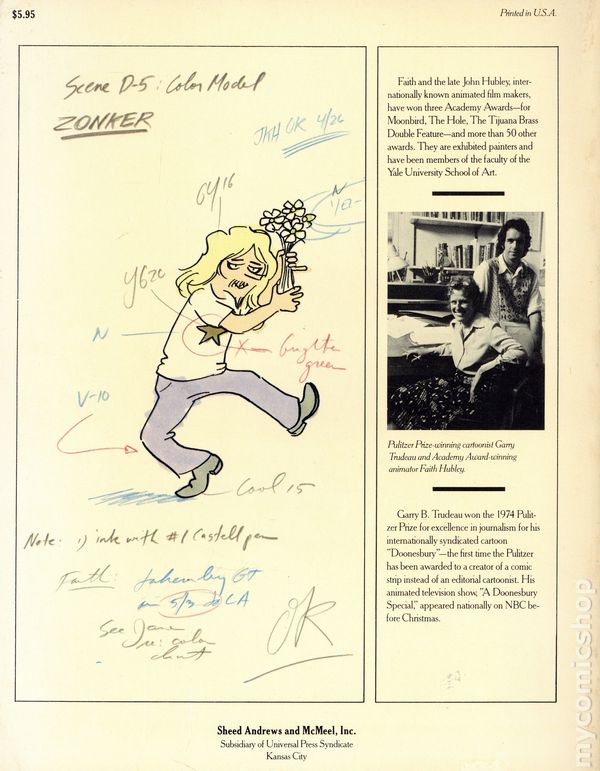 $5.95
Printed in U.S.A.
Scene D-5: Color Model
ZONKER
JKH OK 4/26
GY16
N
Y620
N
X brighter
green
V-10
Cool 15
Note: 1) ink with #1 Castell pen
Faith: taken by GT
on 5/3 to LA
See Jane
re: color
chart
OK
Faith and the late John Hubley, inter-
nationally known animated film makers,
have won three Academy Awards—for
Moonbird, The Hole, The Tijuana Brass
Double Feature—and more than 50 other
awards. They are exhibited painters and
have been members of the faculty of the
Yale University School of Art.
Pulitzer Prize-winning cartoonist Garry
Trudeau and Academy Award-winning
animator Faith Hubley.
Garry B. Trudeau won the 1974 Pulit-
zer Prize for excellence in journalism for his
internationally syndicated cartoon
"Doonesbury"—the first time the Pulitzer
has been awarded to a creator of a comic
strip instead of an editorial cartoonist. His
animated television show, "A Doonesbury
Special," appeared nationally on NBC be-
fore Christmas.
Sheed Andrews and McMeel, Inc.
Subsidiary of Universal Press Syndicate
Kansas City
mycomicshop